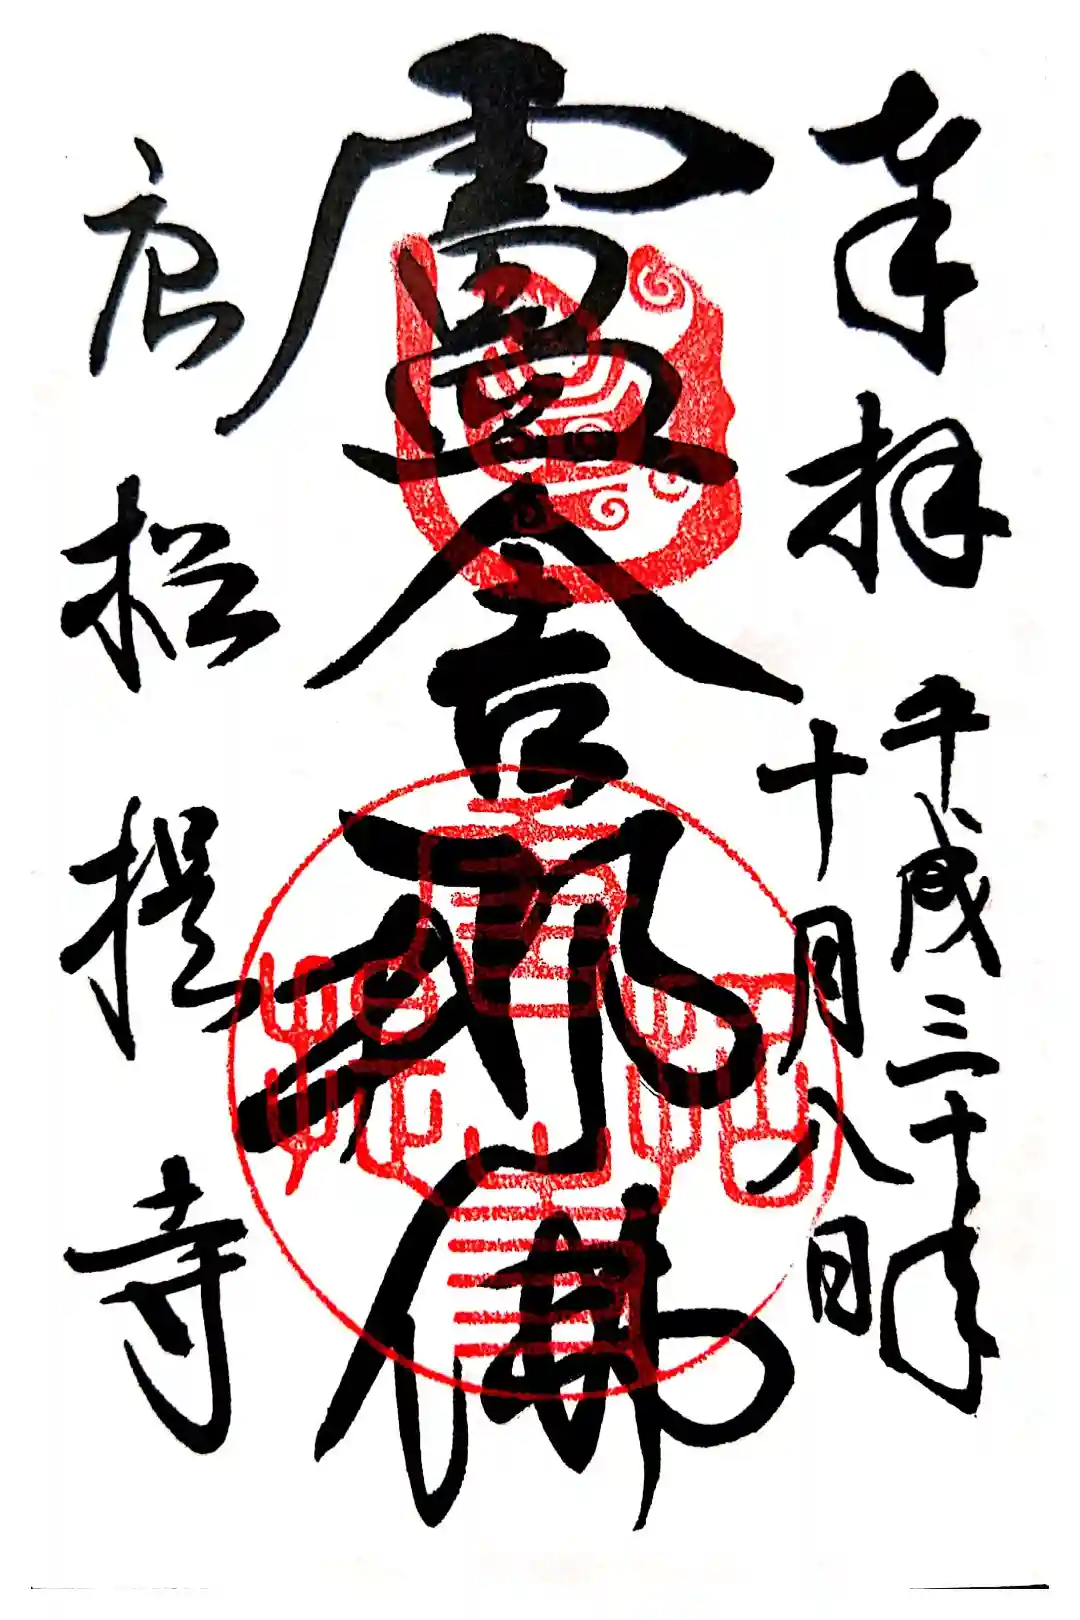 奉拝
平成三十年
十月八日
盧舎那佛
唐招提寺